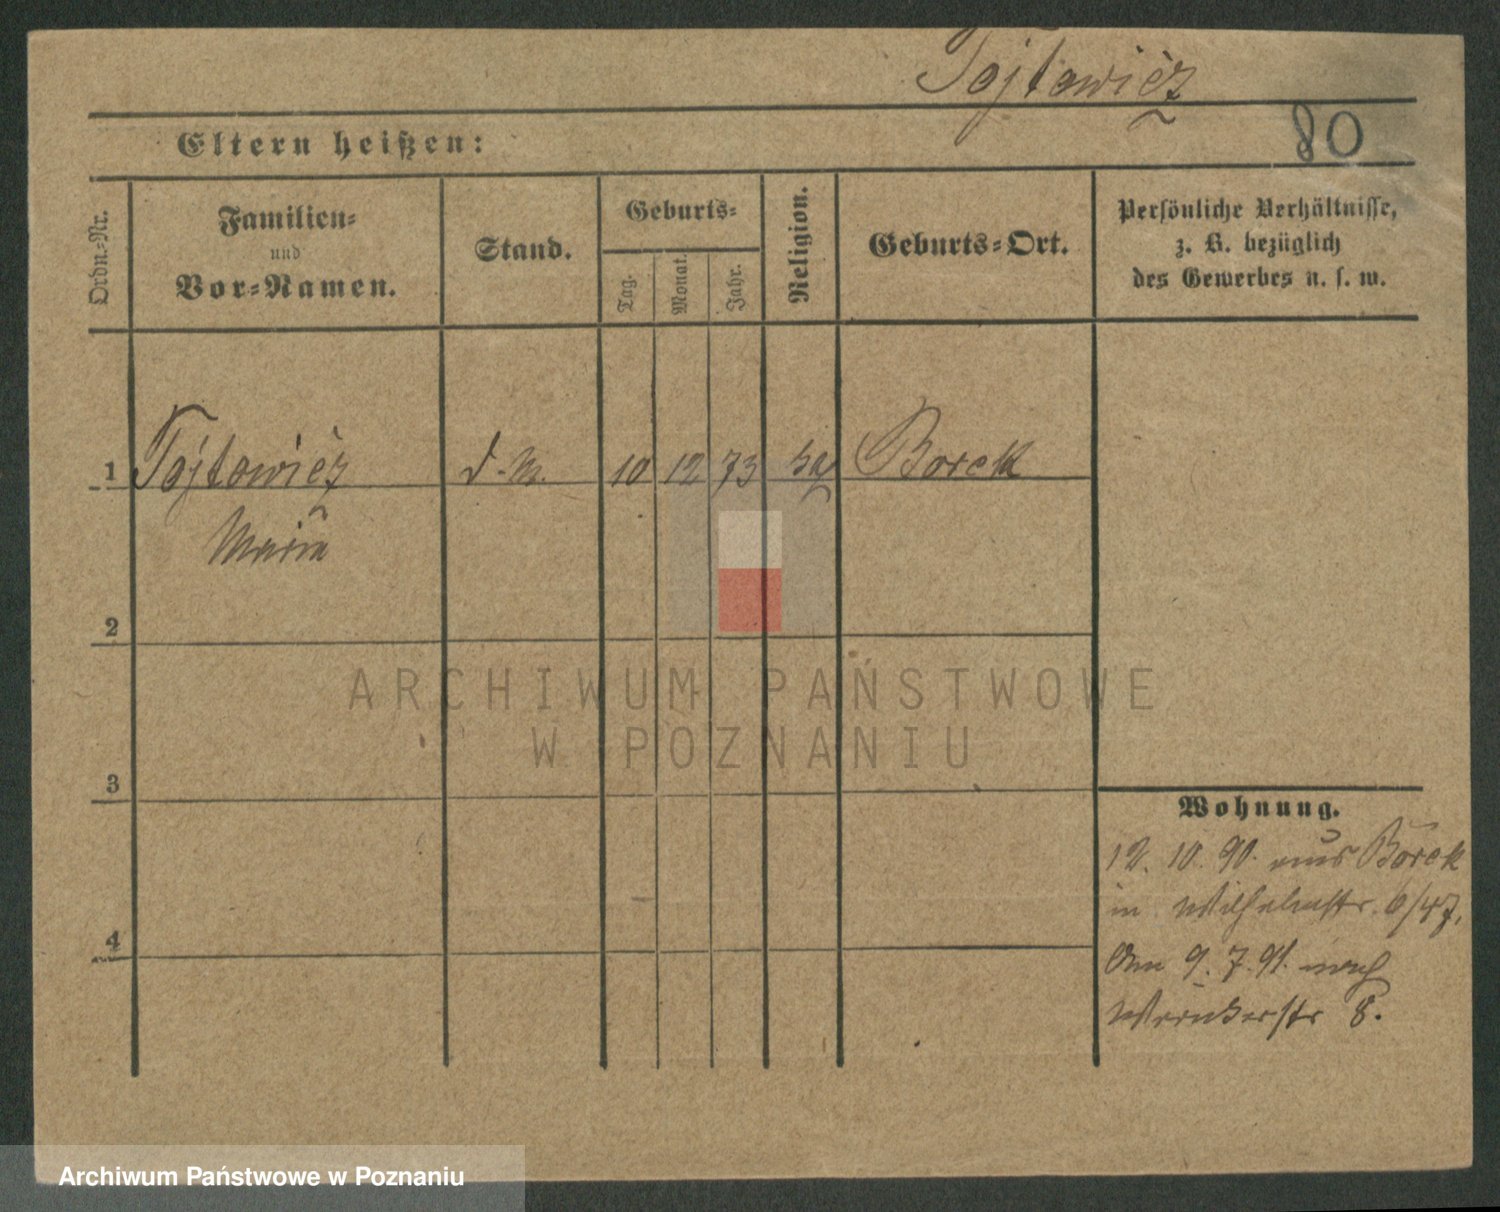 Tojtowicz
80
Eltern heißen:
Ordn.-Nr.
Familien-
und
Vor-Namen.
Stand.
Geburts-
Tag.
Monat.
Jahr.
Religion.
Geburts-Ort.
Persönliche Verhältnisse,
z. B. bezüglich
des Gewerbes u. s. w.
1 Tojtowicz d. M. 10 12 73 Borek
Maria
2
3
4
Wohnung.
12. 10. 90. aus Borek
in Wilhelmstr. 6/47.
Am 9. 7. 91. nach
8.
ARCHIWUM PAŃSTWOWE
W POZNANIU
Archiwum Państwowe w Poznaniu